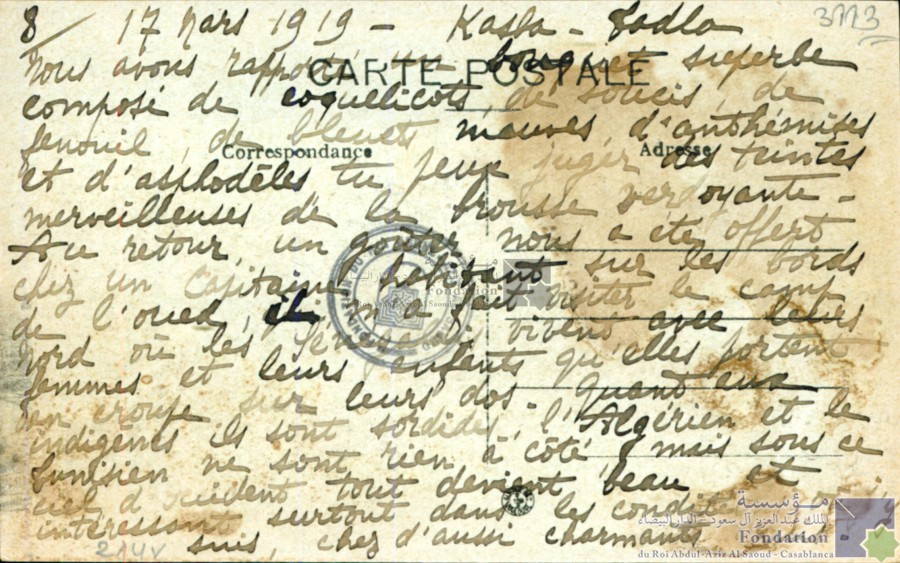 8/ 17 Mars 1919 - Kasba - Tadla
3113
CARTE POSTALE
Nous avons rapporté un bouquet superbe
composé de coquelicots, de soucis, de
fenouil, de bleuets mauves, d'anthémises
Correspondance
Adresse
et d'asphodèles tu peux juger des teintes
merveilleuses de la brousse verdoyante -
Au retour, un goûter nous a été offert
chez un Capitaine habitant sur les bords
de l'oued, il m'a fait visiter le camp
nord où les vivent avec leurs
femmes et leurs enfants qu'elles portent
en croupe sur leurs dos - quant aux
indigènes ils sont sordides, l'Algérien et le
tunisien ne sont rien à côté, mais sous ce
ciel d'occident tout devient beau et
intéressant surtout dans les
suis, chez d'aussi charmants
214V
مؤسسة
الملك عبد العزيز آل سعود - الدار البيضاء
Fondation
du Roi Abdul-Aziz Al Saoud - Casablanca